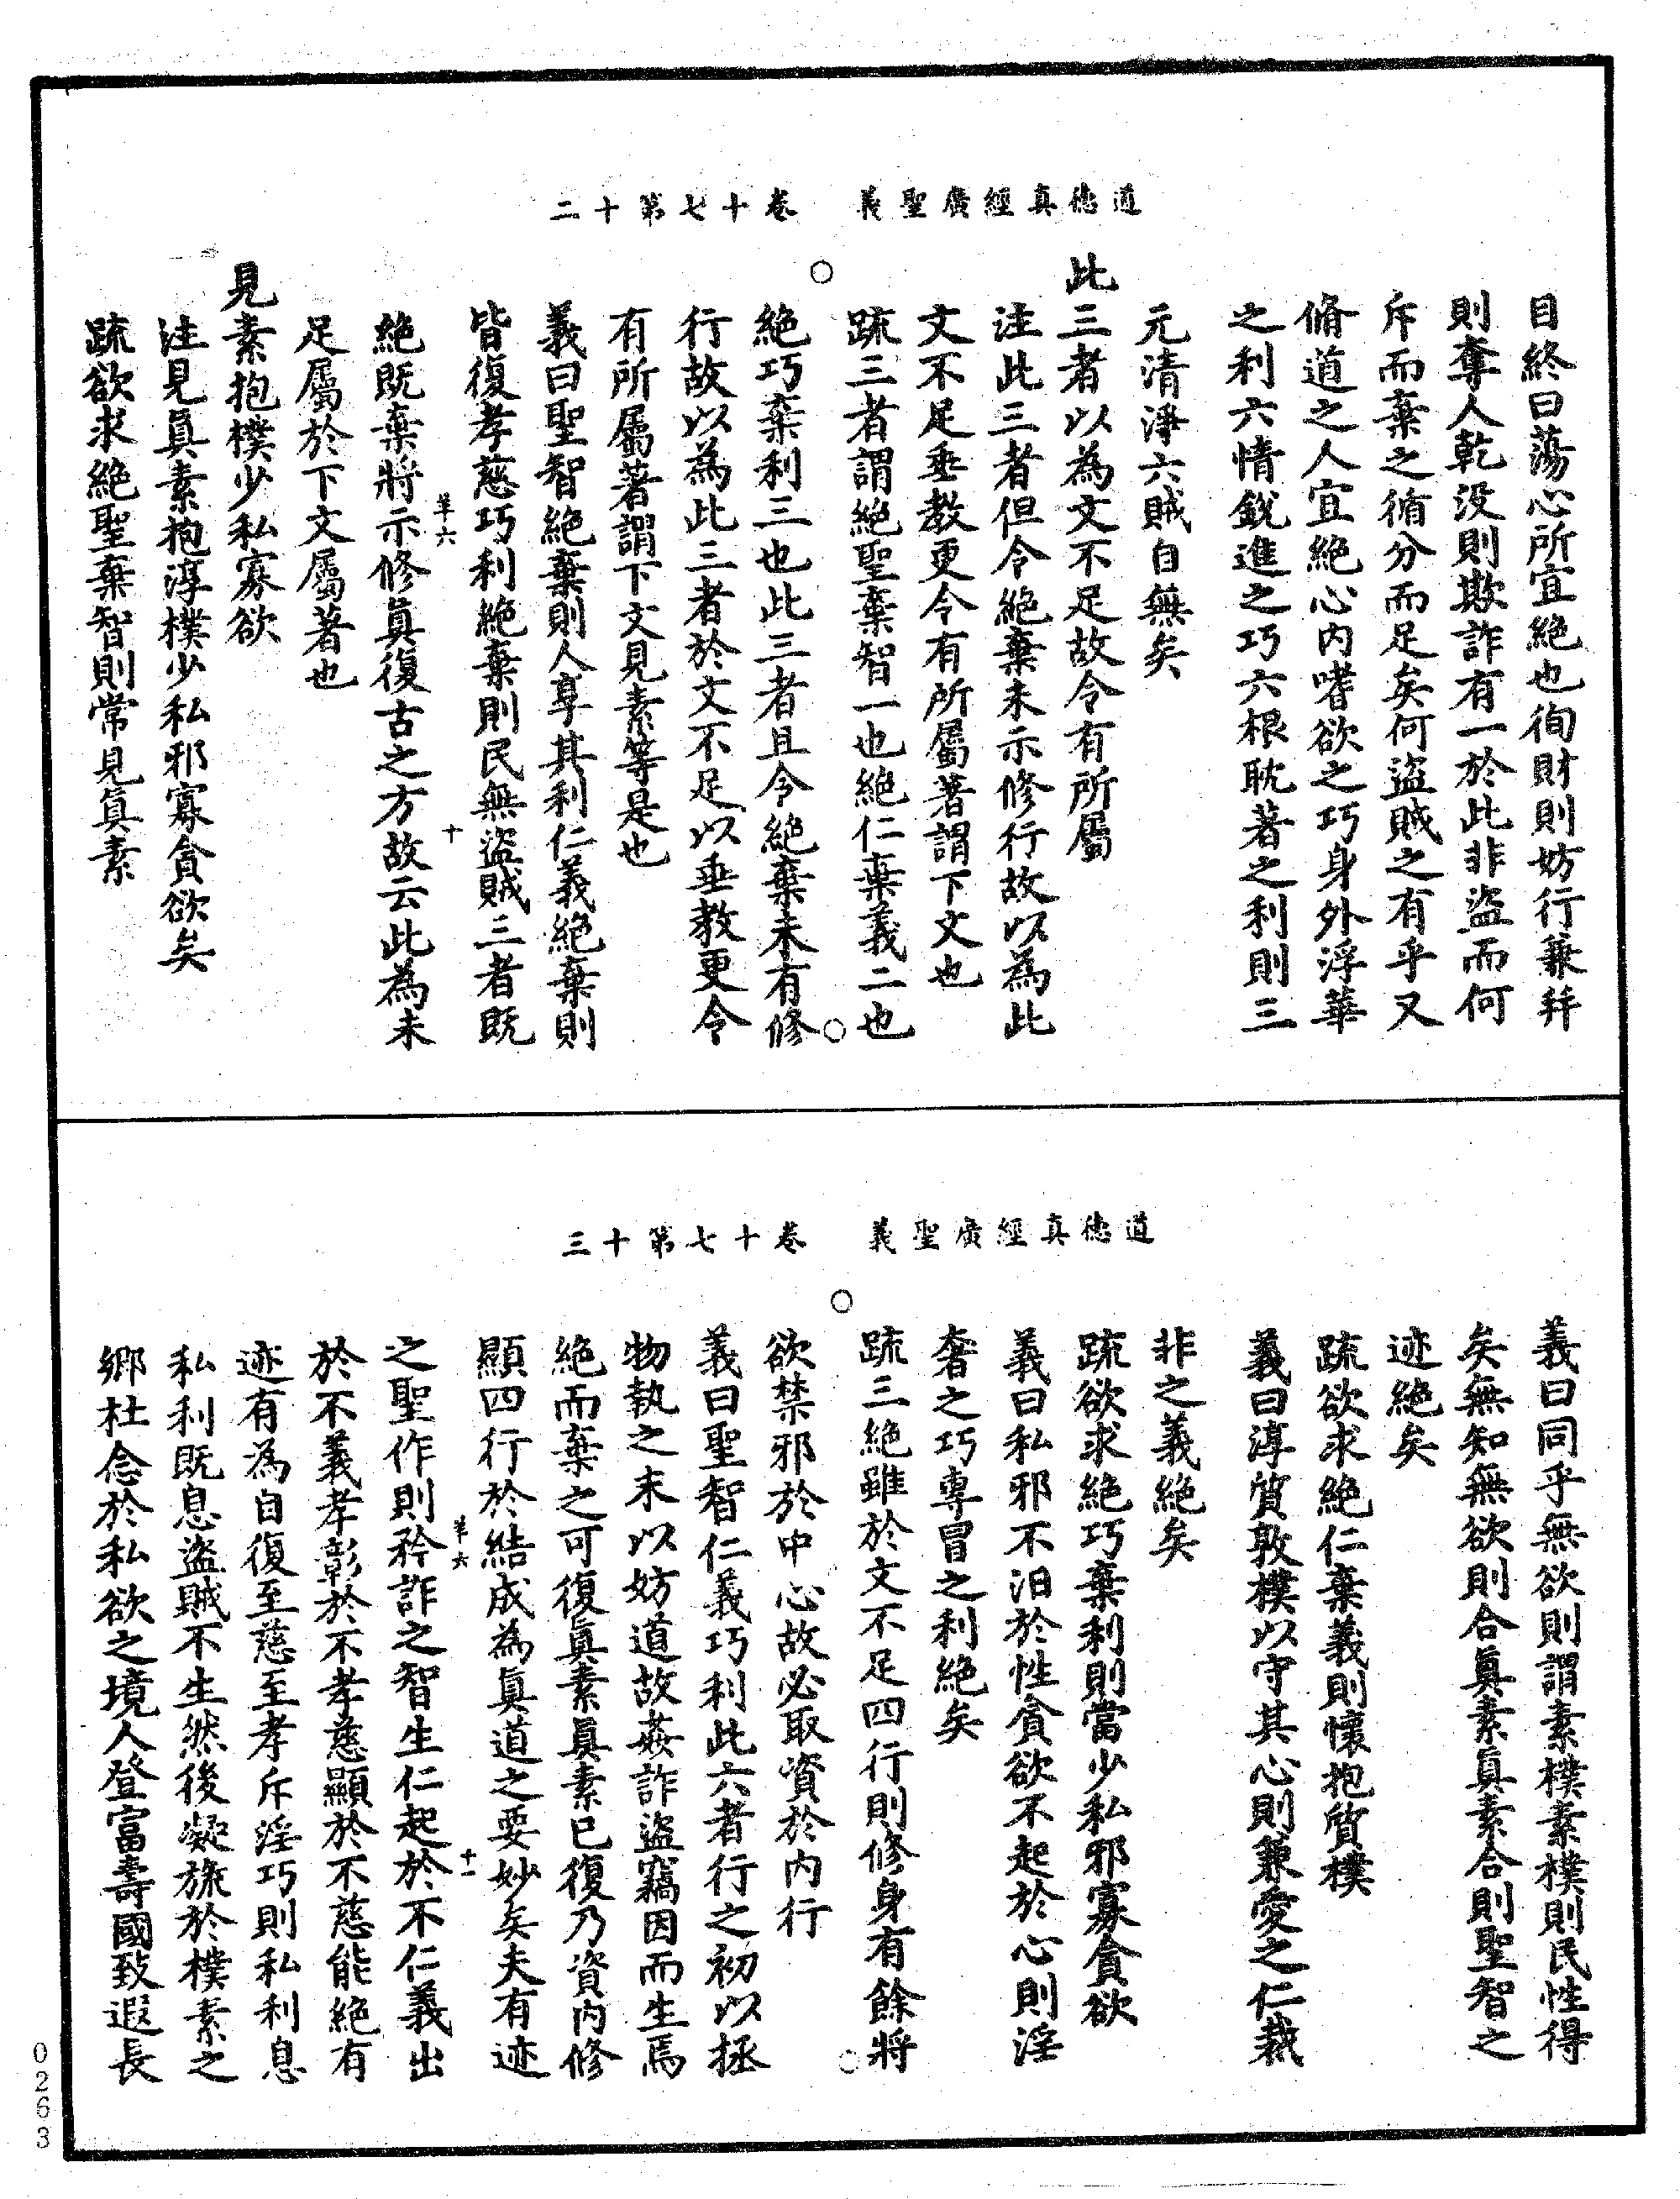 道德真經廣聖義　卷十七第十二
目終日蕩心所宜絕也徇財則妨行兼并
則奪人乾没則欺詐有一於此非盜而何
斥而棄之循分而足矣何盜賊之有乎又
脩道之人宜絕心内嗜欲之巧身外浮華
之利六情銳進之巧六根耽著之利則三
元清淨六賊自無矣
此三者以為文不足故令有所屬
注此三者但令絕棄未示修行故以為此
文不足垂教更令有所屬著謂下文也
疏三者謂絕聖棄智一也絕仁棄義二也
絕巧棄利三也此三者且令絕棄未有修
行故以為此三者於文不足以垂教更令
有所屬著謂下文見素等是也
義曰聖智絕棄則人享其利仁義絕棄則
皆復孝慈巧利絕棄則民無盜賊三者既
羊六　十
絕既棄將示修真復古之方故云此為未
足屬於下文屬著也
見素抱樸少私寡欲
注見真素抱淳樸少私邪寡貪欲矣
疏欲求絕聖棄智則常見真素
道德真經廣聖義　卷十七第十三
義曰同乎無欲則謂素樸素樸則民性得
矣無知無欲則合真素真素合則聖智之
迹絕矣
疏欲求絕仁棄義則懷抱質樸
義曰淳質敦樸以守其心則兼愛之仁裁
非之義絕矣
疏欲求絕巧棄利則當少私邪寡貪欲
義曰私邪不汩於性貪欲不起於心則淫
奢之巧專冒之利絕矣
疏三絕雖於文不足四行則修身有餘將
欲禁邪於中心故必取資於内行
義曰聖智仁義巧利此六者行之初以拯
物執之末以妨道故姦詐盜竊因而生焉
絕而棄之可復真素真素已復乃資内修
顯四行於結成為真道之要妙矣夫有迹
羊六　十一
之聖作則矜詐之智生仁起於不仁義出
於不義孝彰於不孝慈顯於不慈能絕有
迹有為自復至慈至孝斥淫巧則私利息
私利既息盜賊不生然後凝旒於樸素之
鄉杜念於私欲之境人登富壽國致遐長
0263